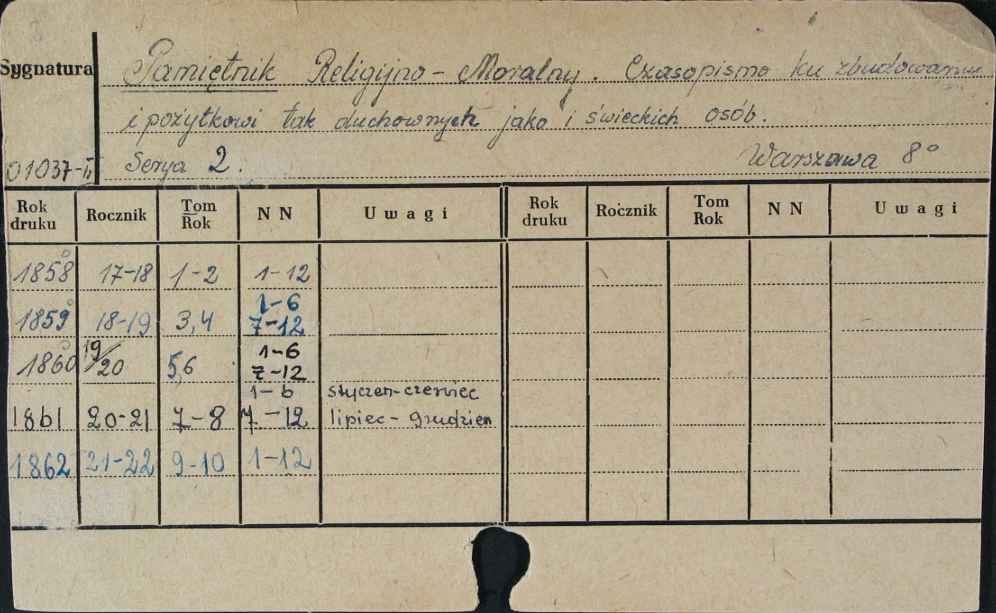 Sygnatura Pamiętnik Religijno - Moralny. Czasopismo ku zbudowaniu
i pożytkowi tak duchownych jako i świeckich osób.
01037-II Serya 2. Warszawa 8°
Rok druku Rocznik Tom Rok NN Uwagi Rok druku Rocznik Tom Rok NN Uwagi
1858 17-18 1-2 1-12
1-6
1859 18-19 3,4 7-12
1-6
1860 19/20 5,6 7-12
1-6 styczeń-czerwiec
1861 20-21 7-8 7-12 lipiec-grudzień
1862 21-22 9-10 1-12